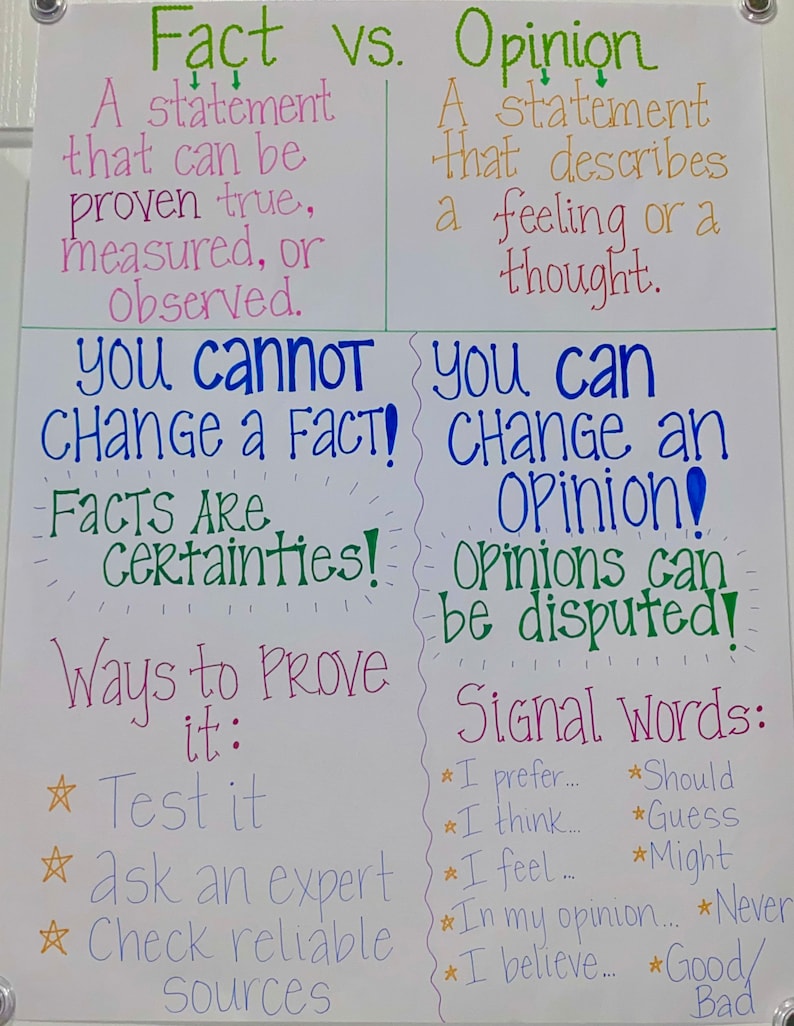 Fact vs. Opinion
A statement
that can be
proven true,
measured, or
observed.
A statement
that describes
a feeling or a
thought.
You cannot
change a fact!
Facts are
certainties!
Ways to prove
it:
Test it
ask an expert
Check reliable
sources
You can
change an
opinion!
Opinions can
be disputed!
Signal words:
I prefer...
I think...
I feel...
In my opinion...
I believe...
Should
Guess
Might
Never
Good/
Bad